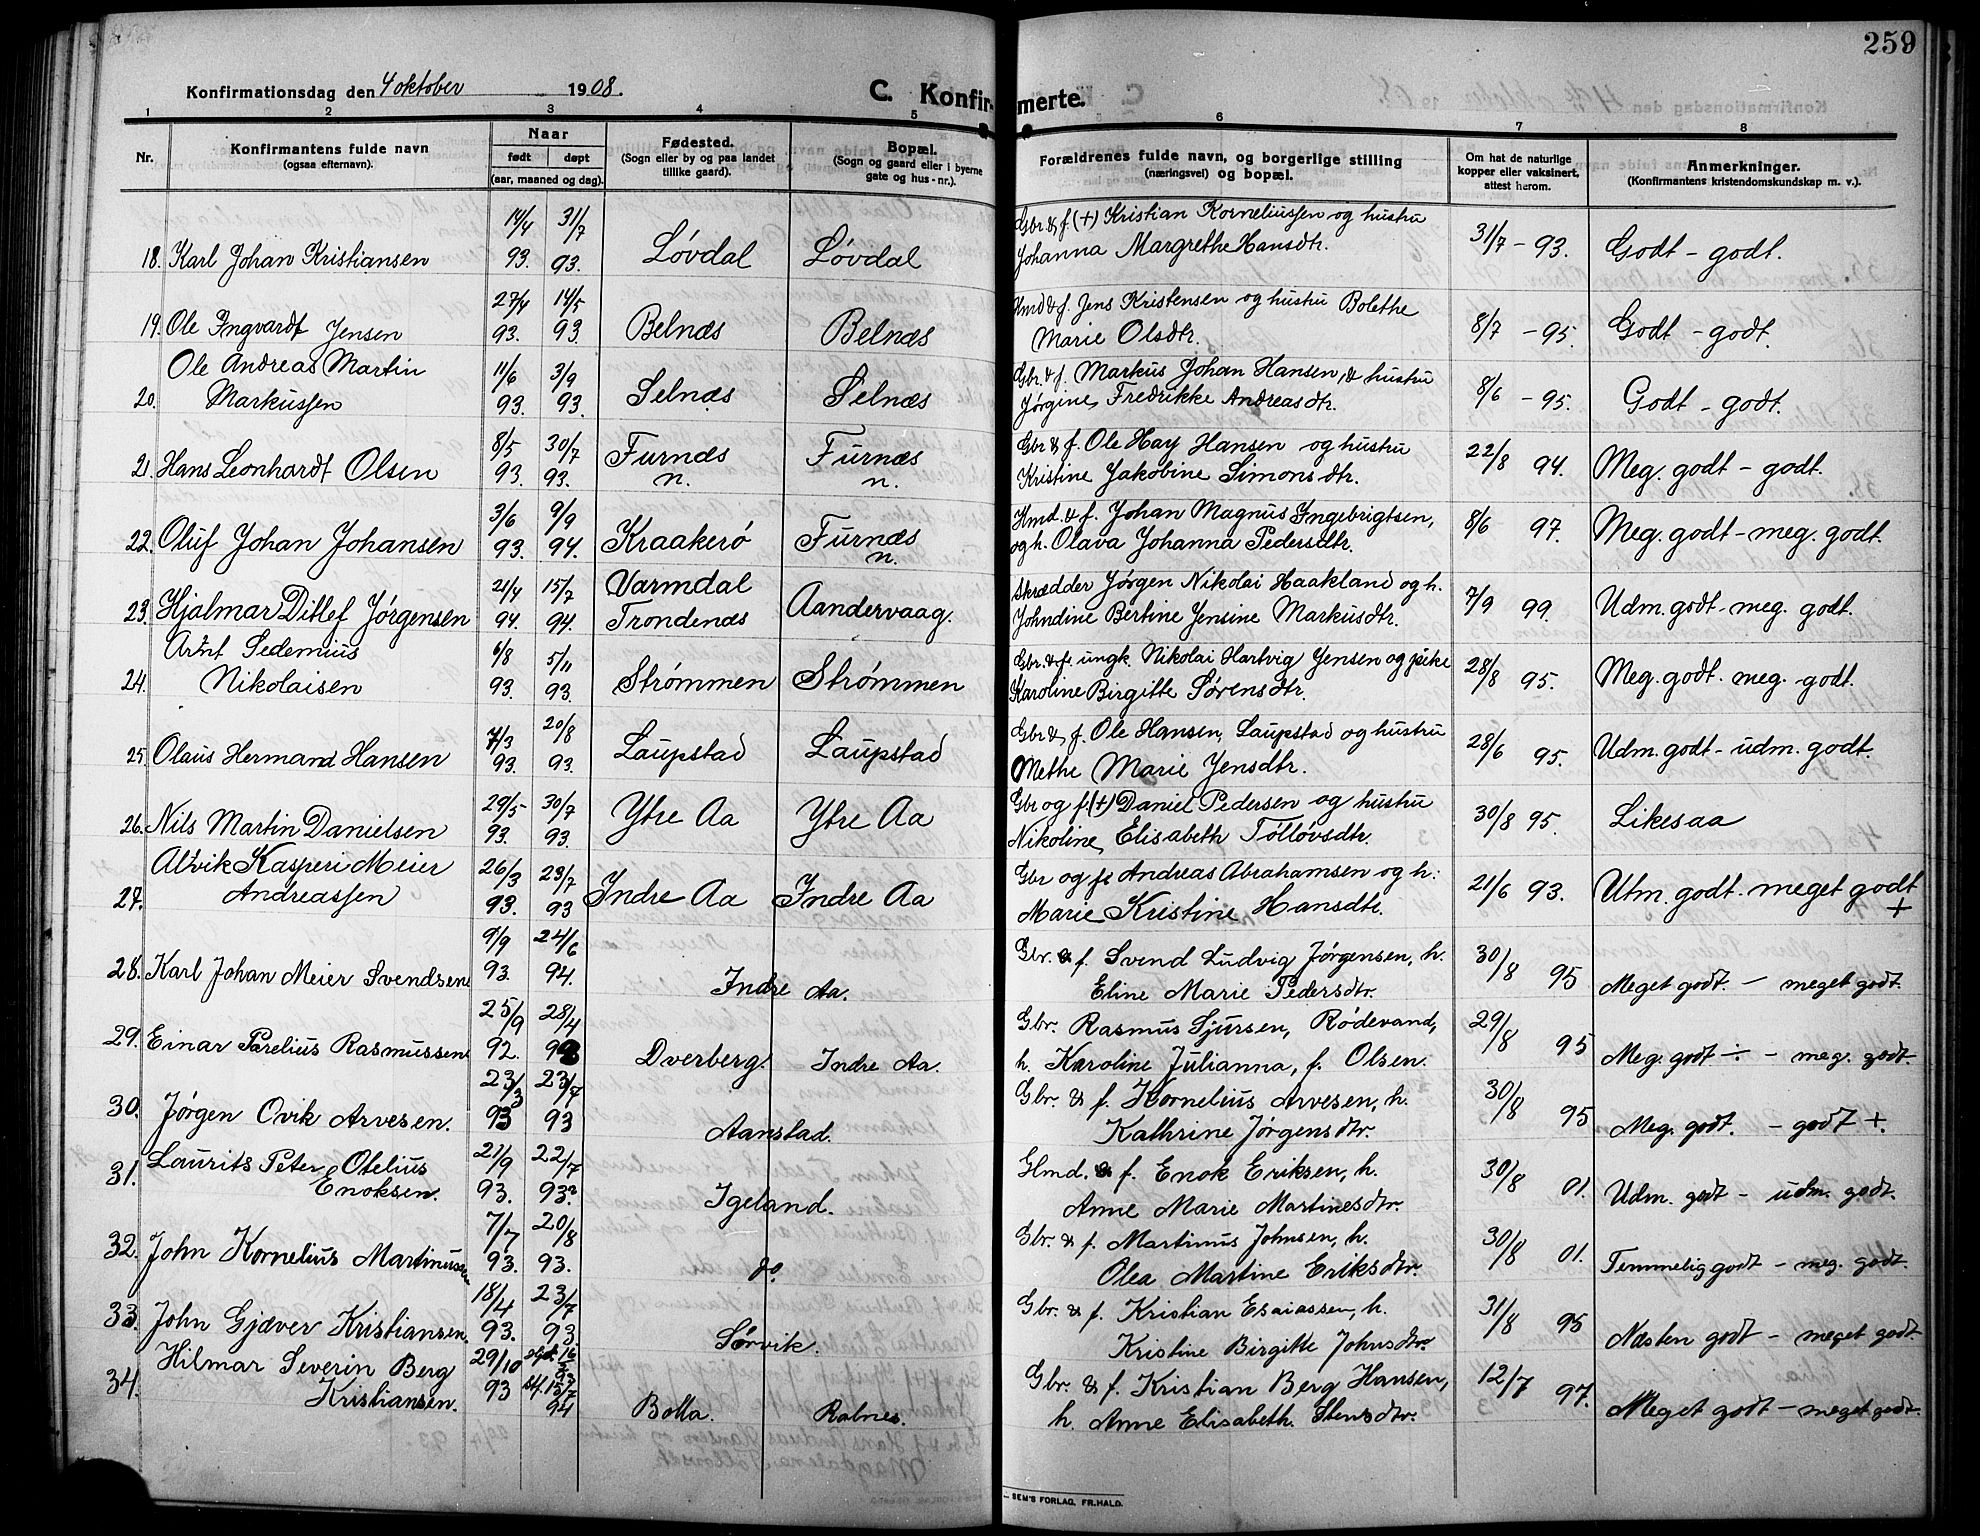 259
Konfirmationsdag den 4 oktober 1908.
C. Konfirmerte.
1 2 3 4 5 6 7 8
Nr.
Konfirmantens fulde navn
(ogsaa efternavn).
Naar
født døpt
(aar, maaned og dag).
Fødested.
(Sogn eller by og paa landet
tillike gaard).
Bopæl.
(Sogn og gaard eller i byerne
gate og hus-nr.).
Forældrenes fulde navn, og borgerlige stilling
(næringsvei) og bopæl.
Om hat de naturlige
kopper eller vaksinert,
attest herom.
Anmerkninger.
(Konfirmantens kristendomskundskap m. v.).
14/4 31/7 Gbr. & f. (+) Kristian Korneliussen og hustru
18. Karl Johan Kristiansen 93. 93. Løvdal Løvdal Johanna Margrethe Hansdtr. 31/7 - 93. Godt - godt.
27/4 14/5 Hmd & f. Jens Kristensen og hustru Bolethe
19. Ole Ingvardt Jensen 93. 93. Belnæs Belnæs Marie Olsdtr. 8/7 - 95. Godt - godt.
Ole Andreas Martin 11/6 3/9 Gbr. & f. Markus Johan Hansen, & hustru
20. Markussen 93. 93. Selnæs Selnæs Jørgine Fredrikke Andreasdtr. 8/6 - 95. Godt - godt.
8/5 30/7 Furnæs Furnæs Gbr & f. Ole Hay Hansen og hustru
21. Hans Leonhardt Olsen 93. 93. n. n. Kristine Jakobine Simonsdtr. 22/8 94. Meg. godt - godt.
3/6 9/9 Hmd. & f. Johan Magnus Ingebrigtsen,
22. Oluf Johan Johansen 93. 94. Kraakerø Furnæs n. og h. Olava Johanna Pedersdtr. 8/6 97. Meg. godt - meg. godt.
21/4 15/7 Varmdal Skrædder Jørgen Nikolai Haakland og h.
23. Hjalmar Ditlef Jørgensen 94. 94. Trondenæs Aandervaag. Johndine Bertine Jensine Markusdtr. 7/9 99. Udm. godt - meg. godt.
Arnt Sedenius 6/8 5/11 Gbr. & f. ungk. Nikolai Hartvig Jensen og pike
24. Nikolaisen 93. 93. Strømmen Strømmen Karoline Birgitte Sørensdtr. 28/8 95. Meg. godt. meg. godt.
7/3 20/8 Gbr & f. Ole Hansen, Laupstad og hustru
25. Olaus Hermand Hansen 93. 93. Laupstad Laupstad Methe Marie Jensdtr. 28/6 95. Udm. godt - udm. godt.
29/5 30/7 Gbr og f. (+) Daniel Pedersen og hustru
26. Nils Martin Danielsen 93. 93. Ytre Aa Ytre Aa Nikoline Elisabeth Tølløvsdtr. 30/8 95. Likesaa
Alvik Kasperi Meier 26/3 23/7 Gbr og f. Andreas Abrahamsen og h:
27. Andreassen 93. 93 Indre Aa Indre Aa Marie Kristine Hansdtr. 21/6 93. Utm. godt. meget godt +
9/9 24/6 Gbr. & f. Svend Ludvig Jørgensen, h.
28. Karl Johan Meier Svendsen 93. 94. Indre Aa. Eline Marie Pedersdtr. 30/8 95 Meget godt. - meget godt.
25/9 28/4 Gbr. Rasmus Sjursen, Rødevand,
29. Einar Parelius Rasmussen 92. 93 Dverberg. Indre Aa. h. Karoline Julianna, f. Olsen. 29/8 95 Meg. godt ÷ - meg. godt.
23/3 23/7 Gbr. & f. Kornelius Arvesen, h.
30. Jørgen Ovik Arvesen. 93 93 Aanstad. Kathrine Jørgensdtr. 30/8 95 Meg. godt. - godt +.
Laurits Peter Otelius 21/9 22/7 Hmd. & f. Enok Eriksen, h.
31. Enoksen. 93. 93? Igeland. Anne Marie Martinesdtr. 30/8 01. Udm. godt - udm. godt.
7/7 20/8 Gbr. & f. Martinus Johnsen, h.
32. John Kornelius Martinussen 93. 93. do. Olea Martine Eriksdtr. 30/8 01. Temmelig godt - meg. godt.
18/4 23/7 Gbr. & f. Kristian Esaiassen, h.
33. John Gjæver Kristiansen. 93. 93. Sørvik. Kristine Birgitte Johnsdtr. 31/8 95 Næsten godt - meget godt
Hilmar Severin Berg 29/10 Gbr. & f. Kristian Berg Hansen,
34. Kristiansen. 93 stf. 15/7 94 Bolla. Rabnes. h. Anne Elisabeth Stensdtr. 12/7 97. Meget godt - meget godt.
SEM'S FORLAG, FR.HALD.